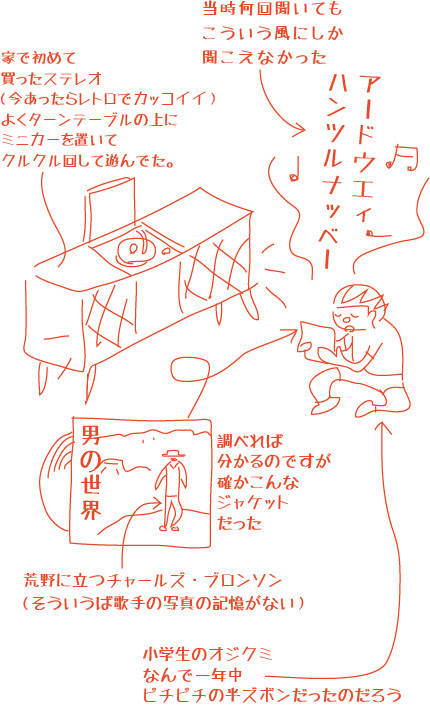 当時何回聞いても
こういう風にしか
聞こえなかった
家で初めて
買ったステレオ
(今あったらレトロでカッコイイ)
よくターンテーブルの上に
ミニカーを置いて
クルクル回して遊んでた。
アードウエィ
ハンツルナッベー
男の世界
調べれば
分かるのですが
確かこんな
ジャケット
だった
荒野に立つチャールズ・ブロンソン
(そういうば歌手の写真の記憶がない)
小学生のオジクミ
なんで一年中
ピチピチの半ズボンだったのだろう